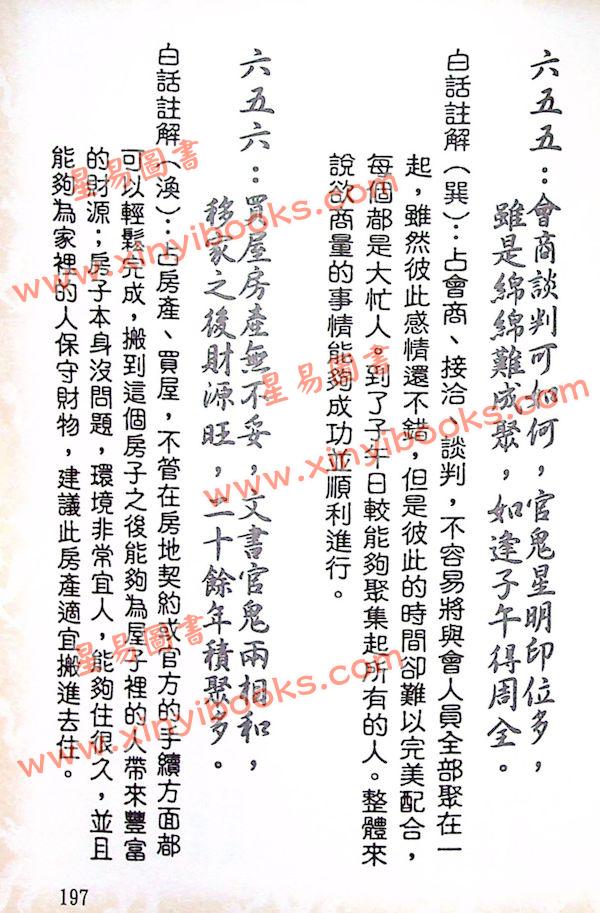 六五五：會商談判可如何，官鬼星明印位多，
雖是綿綿難成聚，如逢子午得周全。
白話註解（巽）：占會商、接洽、談判，不容易將與會人員全部聚在一
起，雖然彼此感情還不錯，但是彼此的時間卻難以完美配合，
每個都是大忙人。到了子午日較能夠聚集起所有的人。整體來
說欲商量的事情能夠成功並順利進行。
六五六：買屋房產無不妥，文書官鬼兩相和，
移家之後財源旺，二十餘年積聚多。
白話註解（渙）：占房產、買屋，不管在房地契約或官方的手續方面都
可以輕鬆完成，搬到這個房子之後能夠為屋子裡的人帶來豐富
的財源；房子本身沒問題，環境非常宜人，能夠住很久，並且
能夠為家裡的人保守財物，建議此房產適宜搬進去住。
197
星易圖書
www.xinyibooks.com
星易圖書
www.xinyibooks.com
星易圖書
www.xinyibooks.com